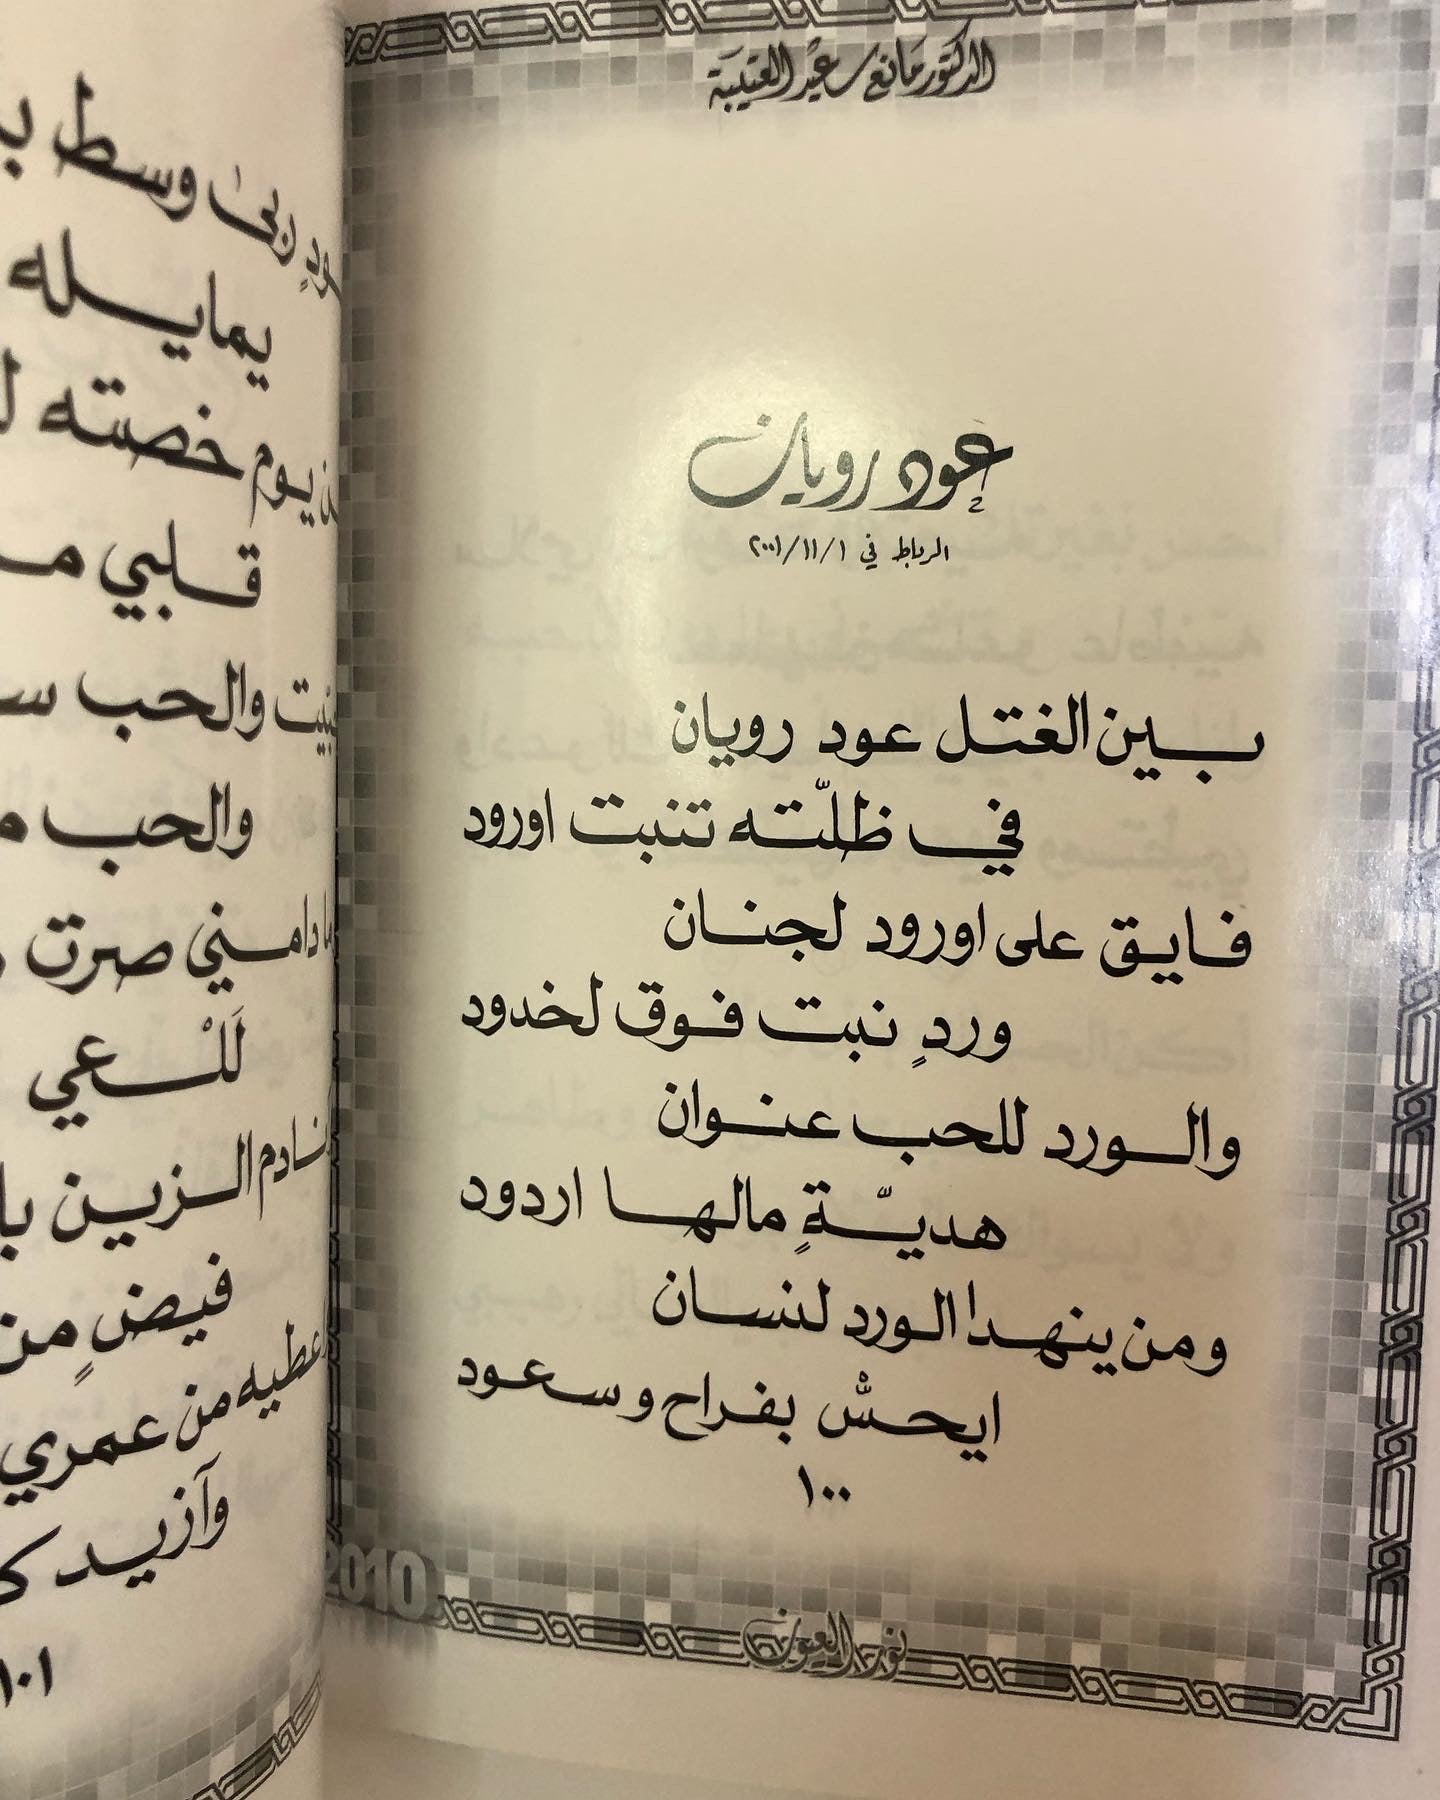 الدكتور مانع سعيد العتيبة
عود رويان
الرباط في ٢٠٠١/١١/١
بين الغتل عود رويان
في ظلّته تنبت اورود
فايق على اورود لجنان
وردٍ نبت فوق لخدود
والورد للحب عنوان
هديّةٍ مالها اردود
ومن ينهدا الورد لنسان
ايحسّْ بفراح وسعود
١٠٠
2010
نور العيون
ودٍ ربىٰ وسط
يمايله
يوم خصته
قلبي
والحب
والحب
مادامني صرت
لَلْعي
نادم الزين
فيضٍ من
اعطيه من عمري
وآزيد
١٠١